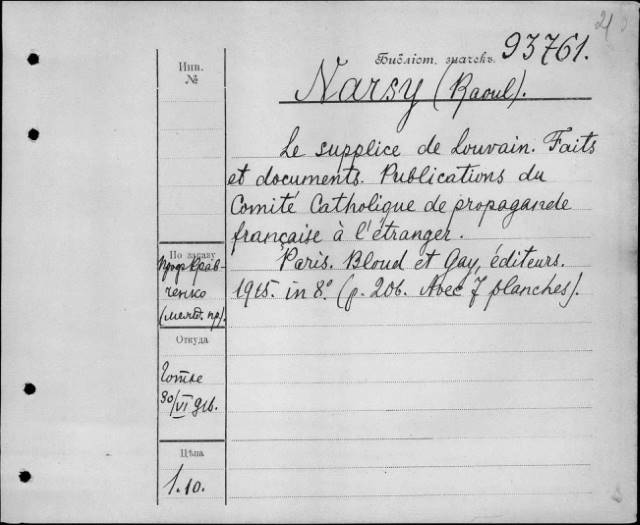 Библіот. значекъ 93761.
Инв.
№
Narsy (Raoul).
Le supplice de Louvain. Faits
et documents. Publications du
Comité Catholique de propagande
française à l'étranger.
Paris. Bloud et Gay, éditeurs.
1915. in 8.° (p. 206. Avec 7 planches).
По заказу
ченко
Откуда
Готье
30/VI 916.
Цѣна
1.10.